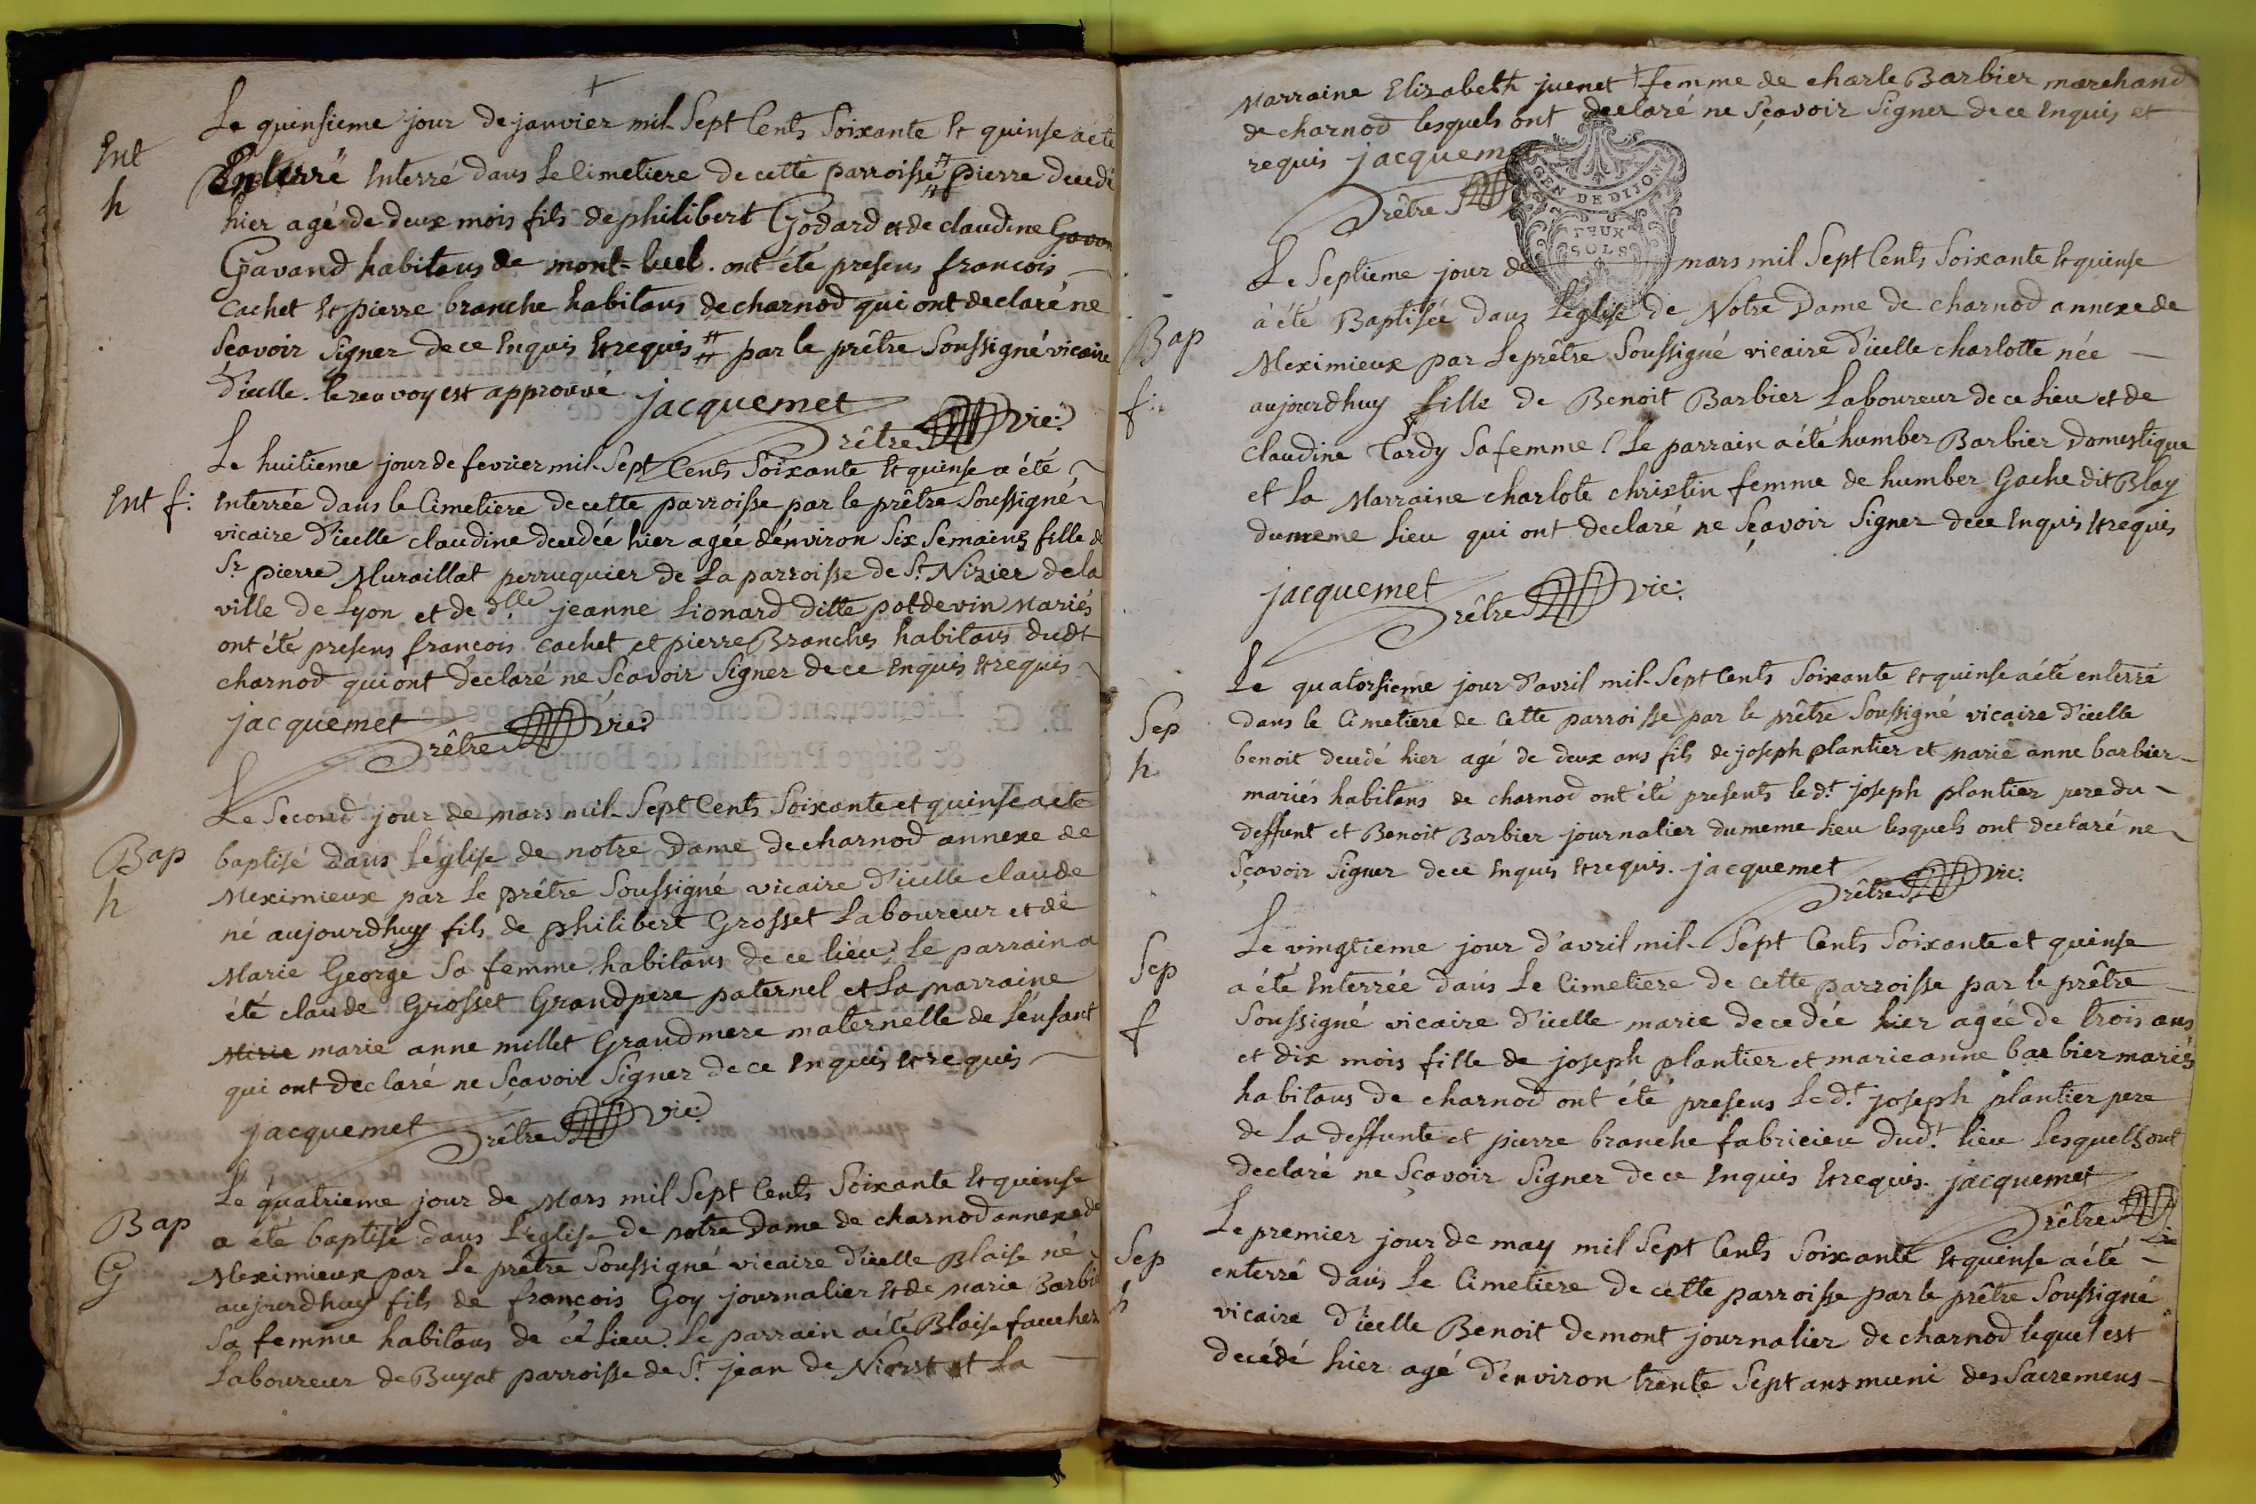 Le quinsieme jour de janvier mil Sept Cents Soixante et quinse a été
Int
h
Enterré Interré dans le Cimetiere de cette parroisse # pierre decedé
hier agé de deux mois fils de philibert Godard et de claudine
Gavand habitans de mont-luel. ont été presens francois
Cachet et pierre branche habitans de charnod qui ont declaré ne
Sçavoir Signer de ce Enquis et requis # par le prêtre Soussigné vicaire
d'icelle. le renvoy est approuvé jacquemet
Prêtre vic:
Le huitieme jour de fevrier mil Sept Cents Soixante et quinse a été
Int f:
Interrée dans le Cimetiere de cette parroisse par le prêtre Soussigné
vicaire d'icelle claudine decedée hier agée d'environ Six Semaines fille de
Sr pierre Muraillat perruquier de La parroisse de St Nizier de la
ville de Lyon et de dlle jeanne Lionard ditte potdevin Mariés
ont été presens francois Cachet et pierre Branche habitans dudt
charnod qui ont declaré ne Sçavoir Signer de ce Enquis et requis
jacquemet
Prêtre vic:
Le Second jour de mars mil Sept Cents Soixante et quinse a eté
Bap
h
baptisé dans l'église de notre Dame de charnod annexe de
Meximieux par Le prêtre Soussigné vicaire d'icelle claude
né aujourdhuy fils de philibert Grosset Laboureur et de
Marie George Sa femme habitans de ce lieu. Le parrain a
été claude Grosset Grandpere paternel et La marraine
marie anne millet Grandmere maternelle de L'enfant
qui ont declaré ne Sçavoir Signer de ce Enquis et requis
jacquemet
Prêtre vic:
Le quatrieme jour de Mars mil Sept Cents Soixante et quinse
Bap
G
a été baptisé dans L'église de notre Dame de charnod annexe de
Meximieux par Le prêtre Soussigné vicaire d'icelle Blaise né
aujourdhuy fils de françois Goy journalier et de Marie Barbie
Sa femme habitans de ce Lieu. Le parrain a été Blaise faucher
Laboureur de Buyat parroisse de St jean de Niost et La
Marraine Elizabeth juenet femme de charle Barbier marchand
de charnod lesquels ont declaré ne Sçavoir Signer de ce Enquis et
requis jacquemet
Prêtre
GEN DE DIJON
DEUX
SOLS
Le Septieme jour de mars mil Sept Cents Soixante et quinse
Bap
f:
à été Baptisée dans L'église de Notre Dame de charnod annexe de
Meximieux par Le prêtre Soussigné vicaire d'icelle charlotte née
aujourdhuy fille de Benoit Barbier Laboureur de ce Lieu et de
Claudine Tardy Sa femme. Le parrain a été humber Barbier Domestique
et La Marraine charlote christin femme de humber Gache dit Blay
du meme Lieu qui ont declaré ne Sçavoir Signer de ce Enquis et requis
jacquemet
Prêtre vic:
Le quatorsieme jour d'avril mil Sept Cents Soixante et quinse a été enterré
Sep
h
dans le Cimetiere de Cette parroisse par le prêtre Soussigné vicaire d'icelle
benoit decedé hier agé de deux ans fils de joseph plantier et marie anne barbier
mariés habitans de charnod ont été presents le dt. joseph plantier pere du
deffunt et Benoit Barbier journalier du meme lieu lesquels ont declaré ne
Sçavoir Signer de ce Enquis et requis. jacquemet
Prêtre vic:
Le vingtieme jour d'avril mil Sept Cents Soixante et quinse
Sep
f
a été Interrée dans Le Cimetiere de cette parroisse par le prêtre
Soussigné vicaire d'icelle marie decedée hier agée de trois ans
et dix mois fille de joseph plantier et marie anne barbier mariés
habitans de charnod ont été presens Le dt. joseph plantier pere
de La deffunte et pierre branche fabricien dudt. lieu Lesquels ont
declaré ne Sçavoir Signer de ce Enquis et requis. jacquemet
Prêtre
vic
Le premier jour de may mil Sept Cents Soixante et quinse a été
Sep
h
enterré dans Le Cimetiere de cette parroisse par le prêtre Soussigné
vicaire d'icelle Benoit demont journalier de charnod lequel est
decédé hier agé d'environ trente Sept ans muni des Sacremens